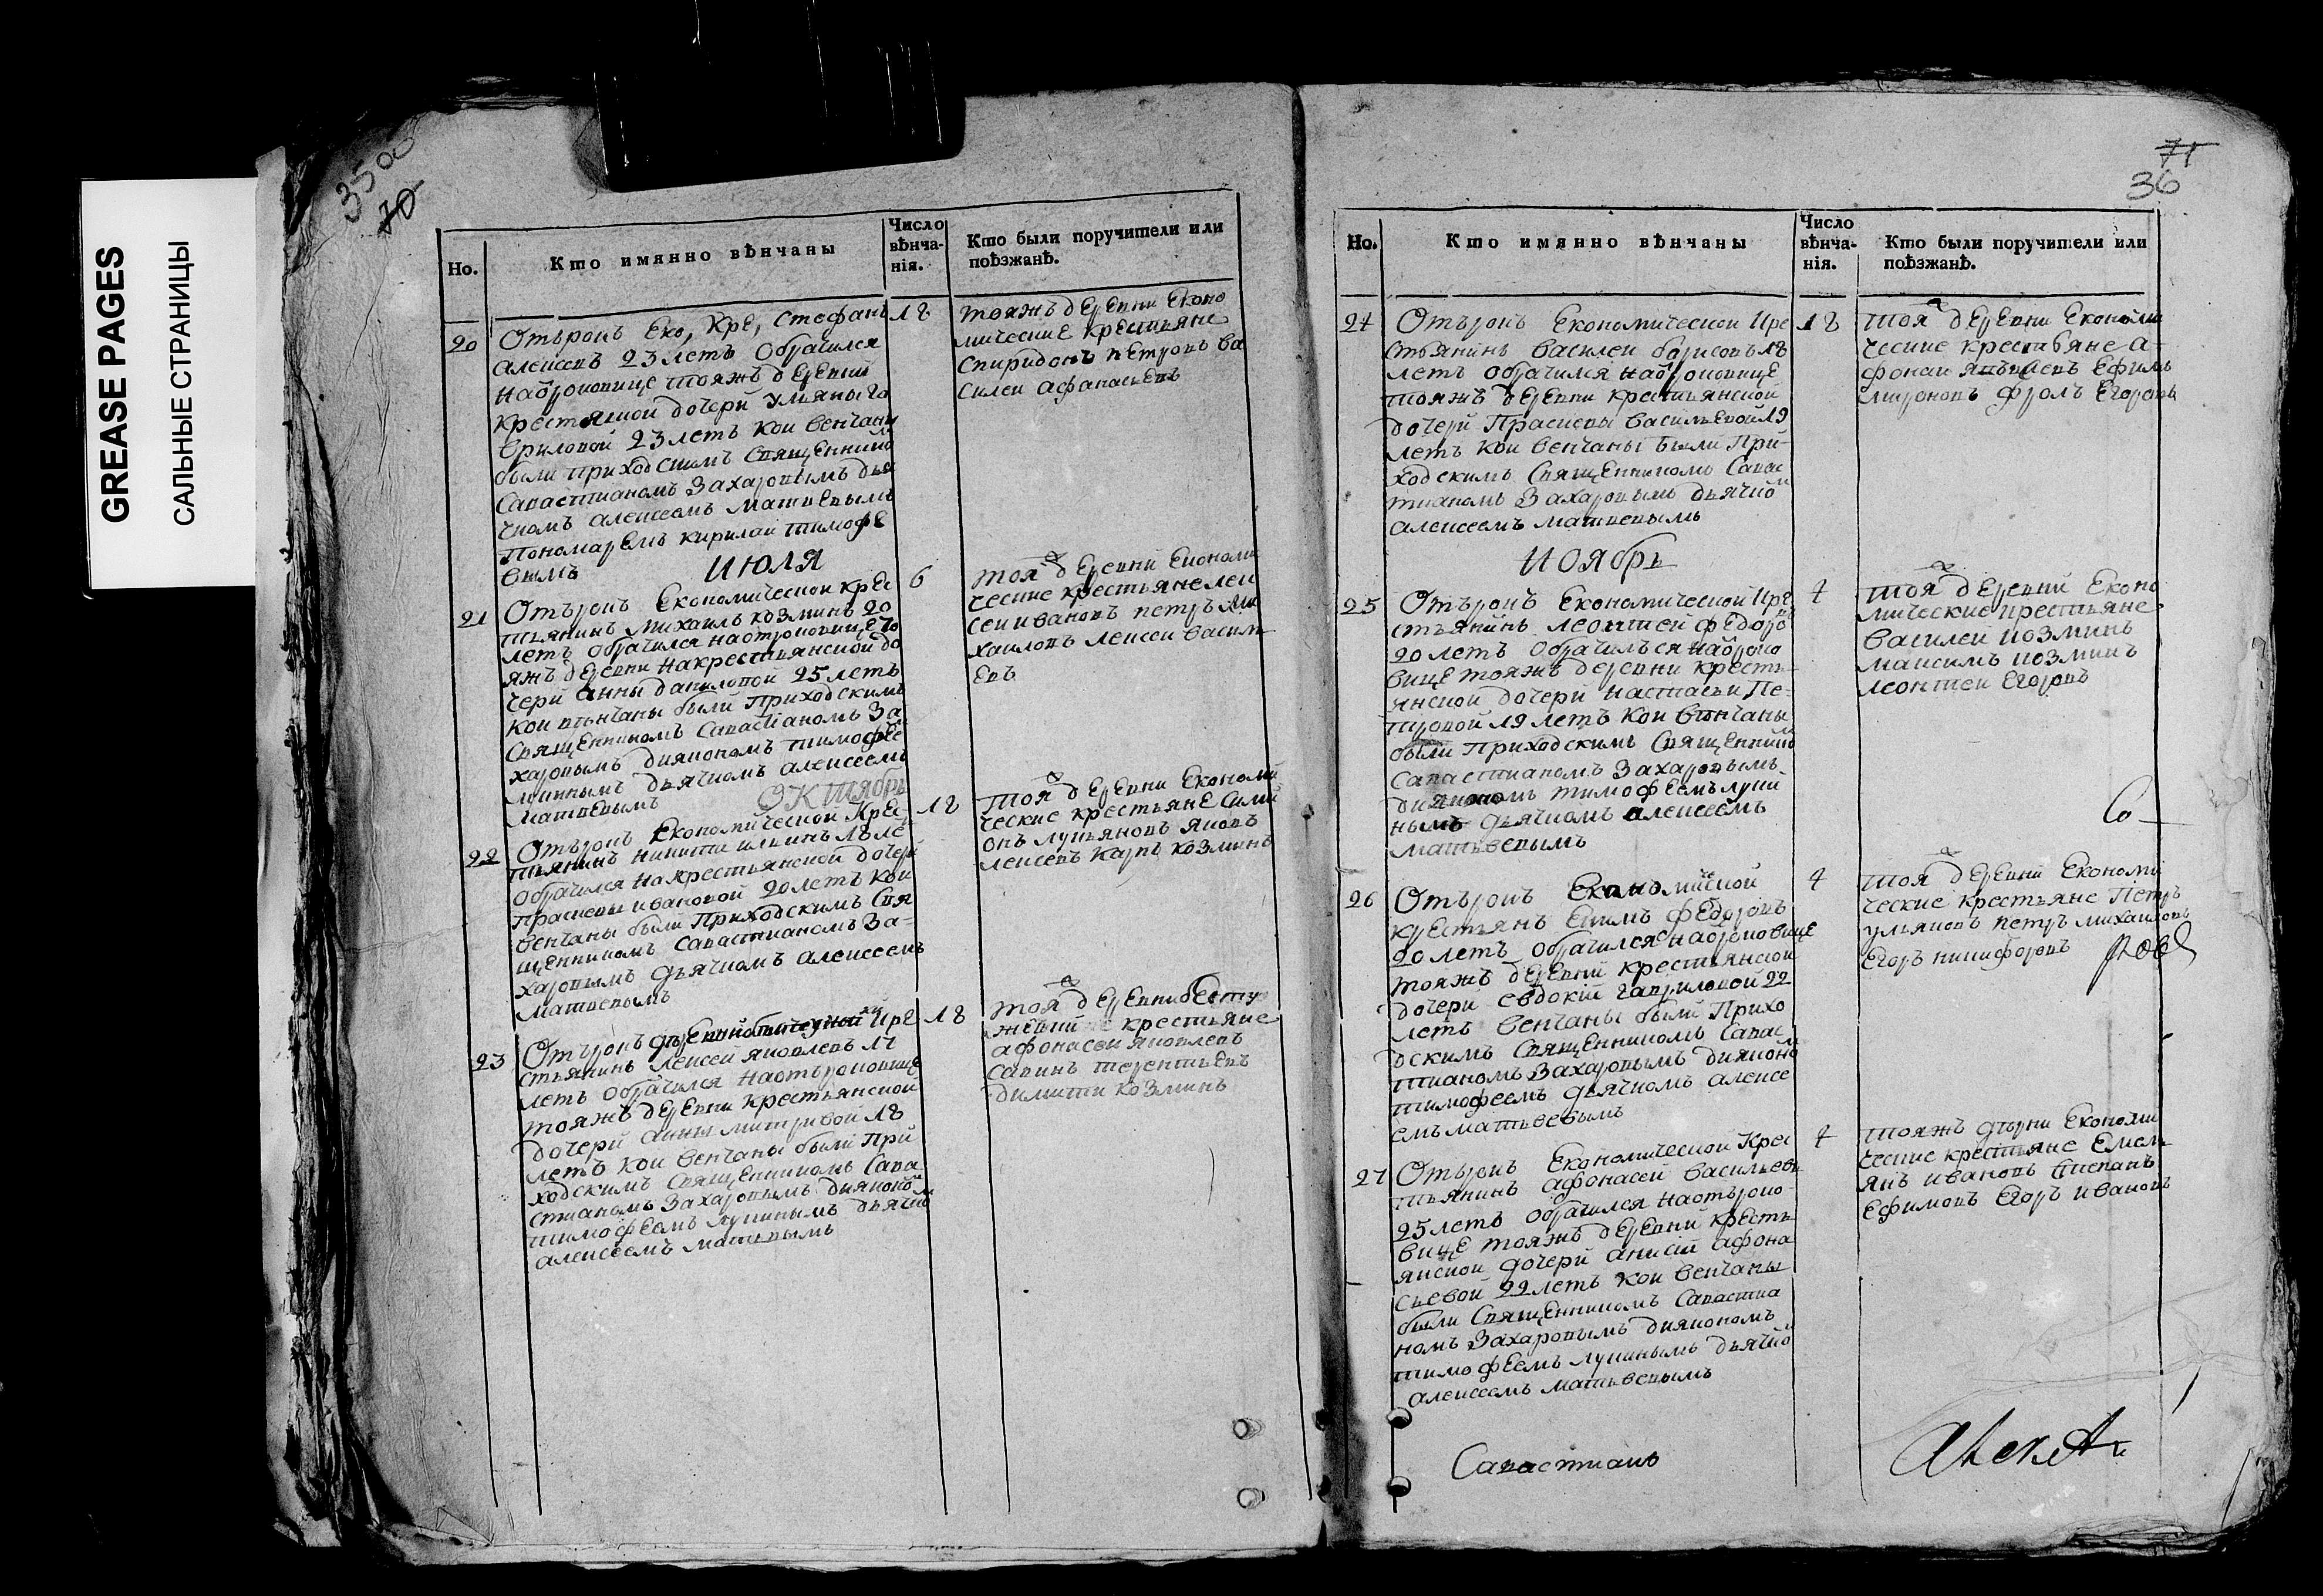 GREASE PAGES
САЛЬНЫЕ СТРАНИЦЫ
35об
70
Но.
Кто имянно вѣнчаны
Число вѣнча-
нія.
Кто были поручители или
поѣзжанѣ.
20
Отърокъ Еко, Кре, Стефанъ
алексевъ 23 летъ Обрачился
наотроковице тояжъ деревни
крестянской дочери ульяны га
вриловой 23 летъ кои венчаны
были приходскимъ священнико
Савастианомъ Захаровымъ дья
чкомъ алексеемъ матвевымъ
пономаремъ кирилай тимофе
вымъ
18
тояжъ деревни Еконо
мические крестьяне
Спиридонъ петровъ ва
силеи афанасьевъ
Июля
21
Отърокъ Економической крес
тьянинъ михаилъ козминъ 20
летъ обрачился наотроковице то
яжъ деревни накрестьянской до
чери анны даниловой 25 летъ
кои вѣнчаны были приходскимъ
священникомъ Савастіаномъ За
харовымъ диякономъ тимофее
дьячкомъ алексеемъ
матвевымъ
6
тояж деревни економи
ческие крестьяне лек
сеи ивановъ петръ ми
хаиловъ лексеи василь
евъ
Октябрь
22
Отърокъ Економической Крес
тьянинъ никита ильинъ 18 ле
обрачился на крестьянской дочери
прасковьи ивановой 20 летъ кои
венчаны были Приходскимъ Свя
щенникомъ Савастианомъ За-
харовымъ дьячкомъ алексеемъ
матвевымъ
18
тояж деревни Економи
ческие крестьяне Сими
онъ лукьяновъ яковъ
лексевъ карпъ козминъ
23
Отърокъ деревни Кре
стьянинъ лексей яковлевъ 17
летъ обрачился наотъроковице
тояжъ деревни крестьянской
дочери анны митривой 18
летъ кои венчаны были При
ходскимъ Священникомъ Сава
стианомъ Захаровымъ дияконо
тимофеемъ лукинымъ дьячко
алексеемъ матвевымъ
18
тояж деревни
крестьяне
афонасеи яковлевъ
савинъ терентьевъ
димити козминъ
71
36
Но.
Кто имянно вѣнчаны
Число вѣнча-
нія.
Кто были поручители или
поѣзжанѣ.
24
Отърокъ Економической Кре
стьянинъ василеи борисовъ 18
летъ обрачился наотроковице
тояжъ деревни крестьянской
дочери Прасковьи васильевой 19
летъ кои венчаны были При-
ходскимъ Священникомъ Савас
тианомъ Захаровымъ дьячко
алексеемъ матвевымъ
18
тояж деревни Економи
ческие крестьяне а-
фонаи Ефимъ
мироновъ фролъ Егоровъ
Ноябрь
25
Отърокъ Економической Кре
стьянинъ леонтей федоро
20 летъ Обрачилъся наотроко
вице тояжъ деревни кресть-
янской дочери настасьи Пе-
тровой 19 летъ кои вѣнчаны
были Приходскимъ Священнико
Савастианомъ Захаровымъ
диякономъ тимофеемъ луки
нымъ дьячкомъ алексеемъ
матьвевымъ
4
тояж деревни Еконо
мические крестьяне
василеи козминъ
максимъ козминъ
леонтеи Егоровъ
Со-
26
Отърокъ Економической
крестьянъ Екимъ федоровъ
20 летъ обрачился наотроковице
тояжъ деревни крестьянской
дочери евдокіи гавриловой 22
летъ венчаны были Прихо
дскимъ Священникомъ Савас
тианомъ Захаровымъ дияконо
тимофеемъ дьячкомъ алексе
емъ матьвевымъ
4
тояж деревни Економи
ческие крестьяне Петръ
ульяновъ петръ михаиловъ
Егоръ никифоровъ
27
Отърокъ Економической Крес
тьянинъ афонасей васильевъ
25 летъ обрачился наотъроко-
вице тояжъ деревни кресть
янской дочери анисіи афона
сьевой 22 летъ кои венчаны
были Священникомъ Савастиа
номъ Захаровымъ диякономъ
тимофеемъ лукинымъ дьячко
алексеемъ матьвевымъ
4
тояжъ дерни Економи
ческие крестьяне Емель
янъ ивановъ степанъ
Ефимовъ Егоръ ивановъ
Савастианъ